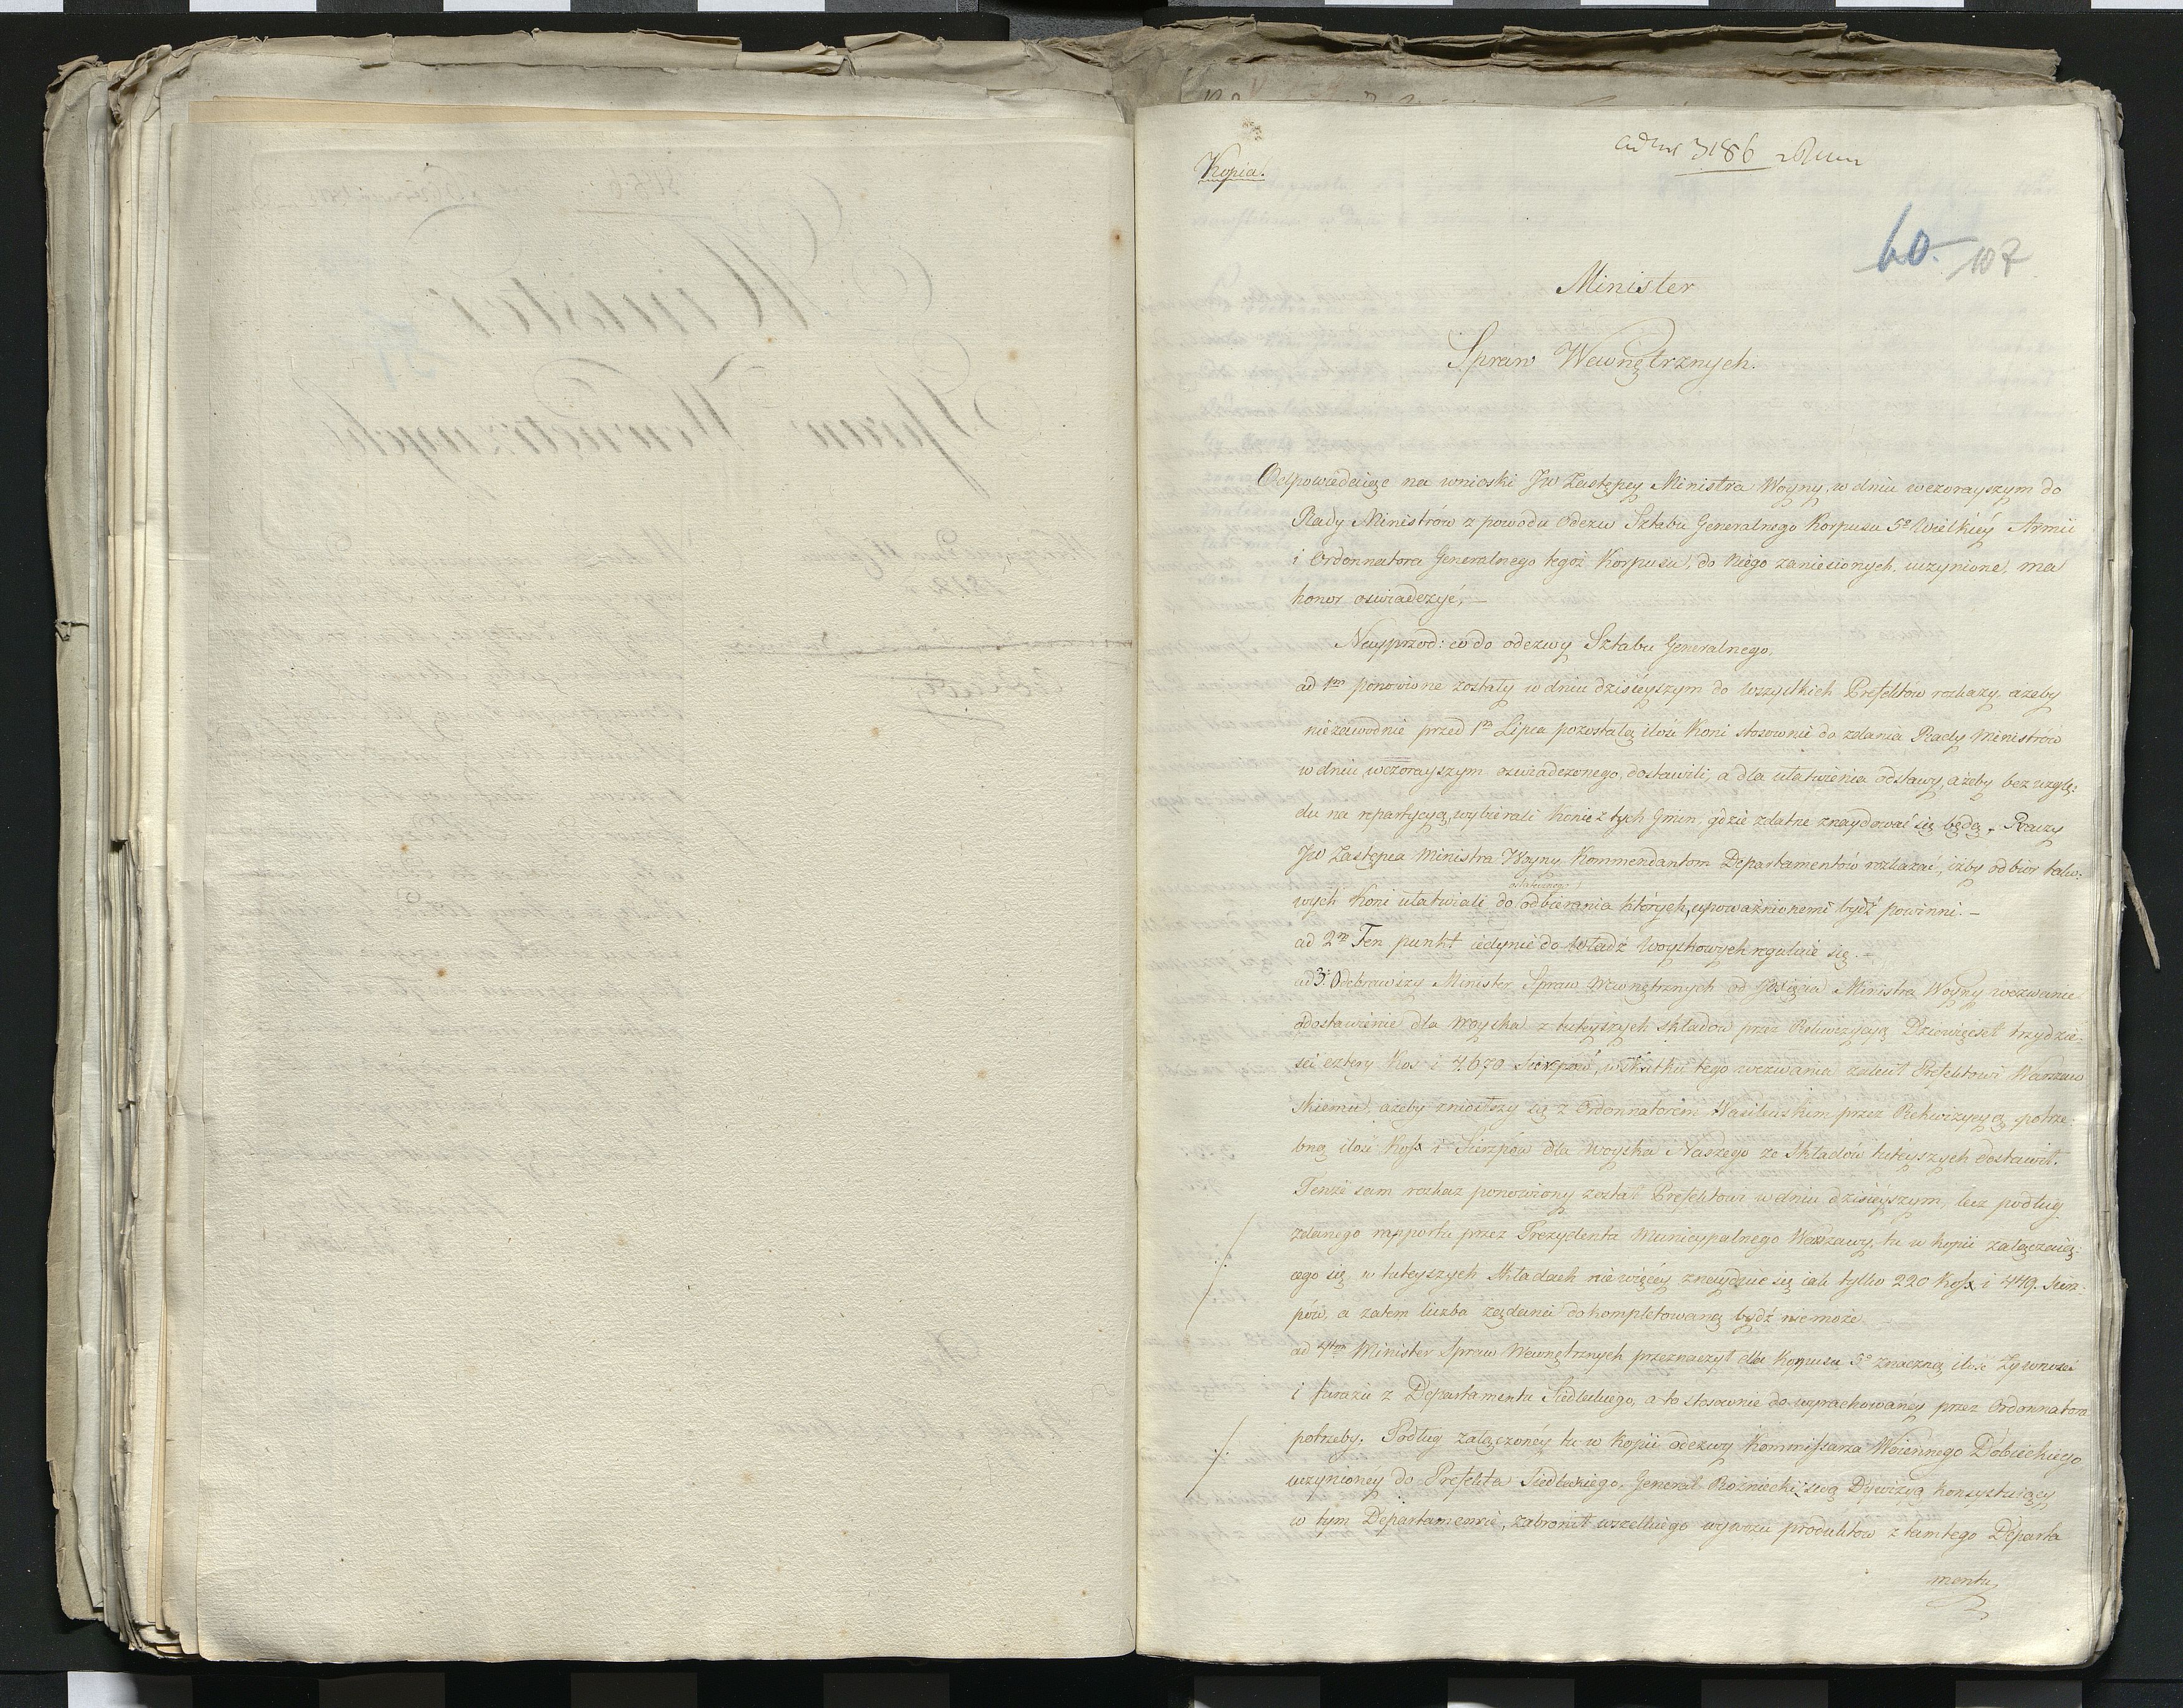 ad Nr 3186
Kopia.
60. 107
Minister
Spraw Wewnętrznych.
Odpowiadaiąc na wnioski JW Zastępcy Ministra Woyny, w dniu wczorayszym do
Rady Ministrów z powodu Odezw Sztabu Generalnego Korpusu 5º Wielkiéy Armii
i Ordonnatora Generalnego tegoż Korpusu, do Niego zaniesionych, uczynione, ma
honor oświadczyć, —
Nayprzod: co do odezwy Sztabu Generalnego,
ad 1m ponowione zostały w dniu dzisieyszym do wszystkich Prefektów rozkazy, ażeby
niezawodnie przed 1m Lipca pozostałą ilość Koni stosownie do zdania Rady Ministrów
w dniu wczorayszym oświadczonego, dostawili, a dla ułatwienia odstawy, ażeby bez wzglę:
du na repartycyą, wybierali Konie z tych Gmin, gdzie zdatne znaydować się będą. Raczy
JW Zastępca Ministra Woyny Kommendantom Departamentów rozkazać, iżby odbior tako:
ostatecznego
wych Koni ułatwiali do odbierania których, upoważnionemi bydź powinni. —
ad 2m Ten punkt iedynie do Władz Woyskowych reguluie się. —
ad 3. Odebrawszy Minister Spraw Wewnętrznych od Xięcia Ministra Woyny wezwanie
o dostawienie dla Woyska z tuteyszych składow przez Rekwizycyą Dziewięćset trzydzie:
ści cztery Kos i 4670 Sierpów, w skutku tego wezwania zalecił Prefektowi Warszaw
skiemu, ażeby zniosłszy się z Ordonnatorem Wasilewskim przez Rekwizycyą potrze:
bną ilość Kos i Sierpów dla Woyska Naszego ze Składów tuteyszych dostawił.
Tenże sam rozkaz ponowiony został Prefektowi w dniu dzisieyszym, lecz podług
zdanego rapportu przez Prezydenta Municypalnego Warszawy, tu w kopii załączaią:
cego się, w tuteyszych Składach niewięcéy znayduie się iak tylko 220 Kos i 449. Sier:
pów, a zatem liczba żądana dokompletowaną bydź niemoże
ad 4tm Minister Spraw Wewnętrznych przeznaczył dla Korpusu 5º znaczną ilość Żywności
i furażu z Departamentu Siedleckiego, a to stosownie do wyrachowanéy przez Ordonnatora
potrzeby. Podług załączonéy tu w Kopii odezwy Kommissarza Woiennego Dobieckiego
uczynionéy do Prefekta Siedleckiego, Generał Rożniecki swą Dywizyą konsystuiący
w tym Departamencie, zabronił wszelkiego wywozu produktow z tamtego Departa
mentu,